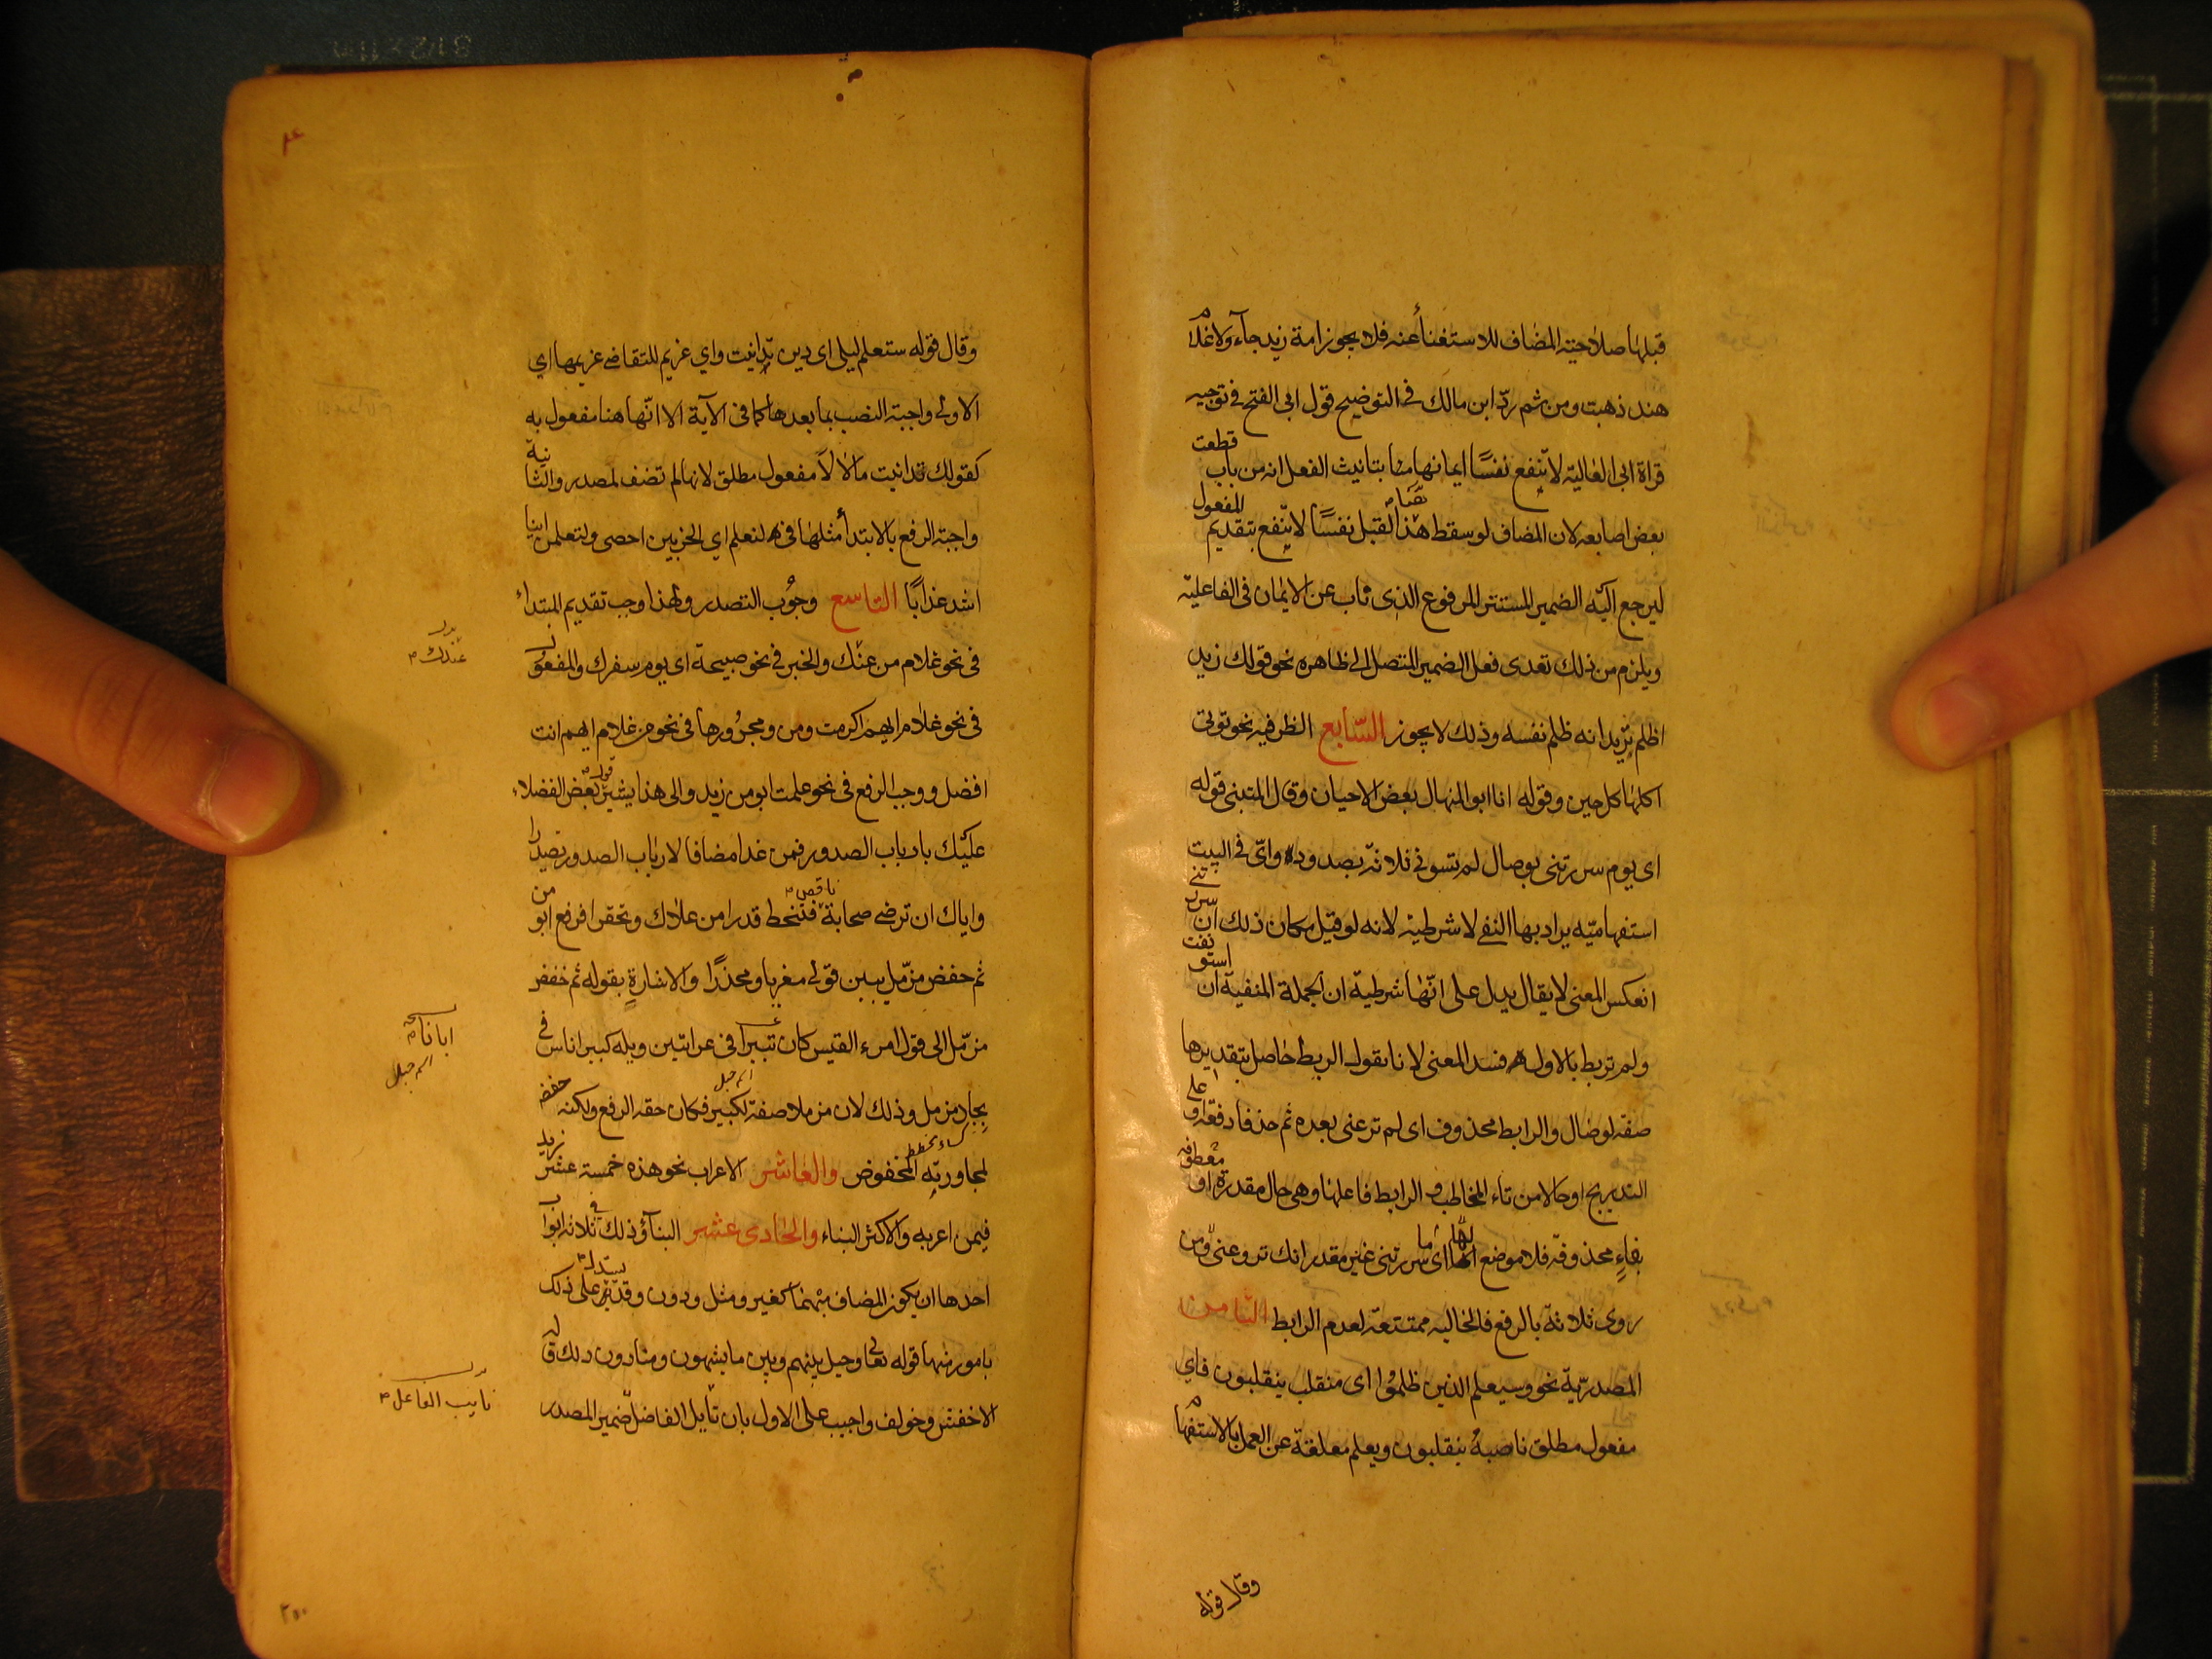 قبلها صلاحية المضاف للاستغناء عنه فلا يجوز امة زيد جاء ولا غلام
هند ذهبت ومن ثم ردّ ابن مالك في التوضيح قول ابى الفتح في توجيه
قراة ابى العالية لا تنفع نفسًا ايمانها بتانيث الفعل انه من باب قطعت
بعض اصابعه لان المضاف لو سقط هنا لقيل نفسًا لا تنفع بتقديم المفعول
ليرجع اليه الضمير المستتر المرفوع الذى ناب عن الايمان في الفاعلية
ويلزم من ذلك تعدى فعل الضمير المتصل الى ظاهره نحو قولك زيد
اظلم تريد انه ظلم نفسه وذلك لا يجوز السّابع الظرفيه نحو توتى
اكلها كل حين وقوله انا ابو المنهال بعض الاحيان وقال المتنبى قوله
اى يوم سررتنى بوصال لم تسونى ثلاثة بصدود واىّ في البيت
استفهاميّه يراد بها النفى لا شرطية لانه لو قيل مكان ذلك ان سررتنى
انعكس المعنى لا يقال يدل على انّها شرطية ان الجملة المنفية ان استونفت
ولم تربط بالاول فسد المعنى لانا نقول الربط حاصل بتقديرها
صفة لوصال والرابط محذوف اى لم ترعنى بعده ثم حذفا دفعة او على
التدريج او حالا من تاء المخاطب والرابط فاعلها وهى حال مقدرة او معطوفه
بفاءٍ محذوفه فلا موضع لها اى ما سررتنى غير مقدر انك تروعنى ومن
روى ثلاثة بالرفع فالحاليه ممتنعه لعدم الرابط الثامن
المصدريّة نحو وسيعلم الذين ظلموا اى منقلب ينقلبون فاى
مفعول مطلق ناصبهُ ينقلبون ويعلم معلقة عن العمل بالاستفهام
وقال قوله
وقال قوله ستعلم ليلى اى دين تداينت واي غريم للتقاضى غريمها اي
الاولى واجبة النصب بما بعدها كما في الآية الا انّها هنا مفعول به
كقولك تداينت مالا لا مفعول مطلق لانها لم تضف لمصدر والثانية
واجبة الرفع بالابتدأ مثلها في لنعلم اي الحزبين احصى ولتعلمن اينا
اشد عذابًا التاسع وجُوب التصدر ولهذا وجب تقديم المبتداء
في نحو غلام من عندك والخبر في نحو صبيحة اى يوم سفرك والمفعول
عندك
في نحو غلام ايهم اكرمت ومن ومجرورها في نحو من غلام ايهم انت
افضل ووجب الرفع في نحو علمت ابو من زيد والى هذا يشير قول بعض الفضلاء
عليك بارباب الصدور فمن غدا مضافا لارباب الصدور تصدرا
واياك ان ترضى صحابة ناقص فتنحط قدرا من علاك وتحقرا فرفع ابو من
ثم خفض مزمّل يبين قولى مغريا ومحذرًا والاشارة بقوله ثم خفض
مزمّل الى قول امرء القيس كان ثبيرا في عرانين وبله كبير اناس في
ابانا
اسم جبل
بجاد مزمل وذلك لان مزملا صفة لكبير فكان حقه الرفع ولكنه خفض
اسم جبل
لمجاورته المخفوض والعاشر الاعراب نحو هذه خمسة عشر زيد
كساء مخطط
فيمن اعربه والاكثر البناء والحادى عشر البنآؤ ذلك في ثلاثة ابواب
احدها ان يكون المضاف مبهما كغير ومثل ودون وقد يستدل على ذلك
بامور منها قوله تعالى وحيل بينهم وبين ما يشتهون ومنا دون ذلك قاله
الاخفش وخولف واجيب على الاول بان نايب الفاعل ضمير المصدر
نايب الفاعل